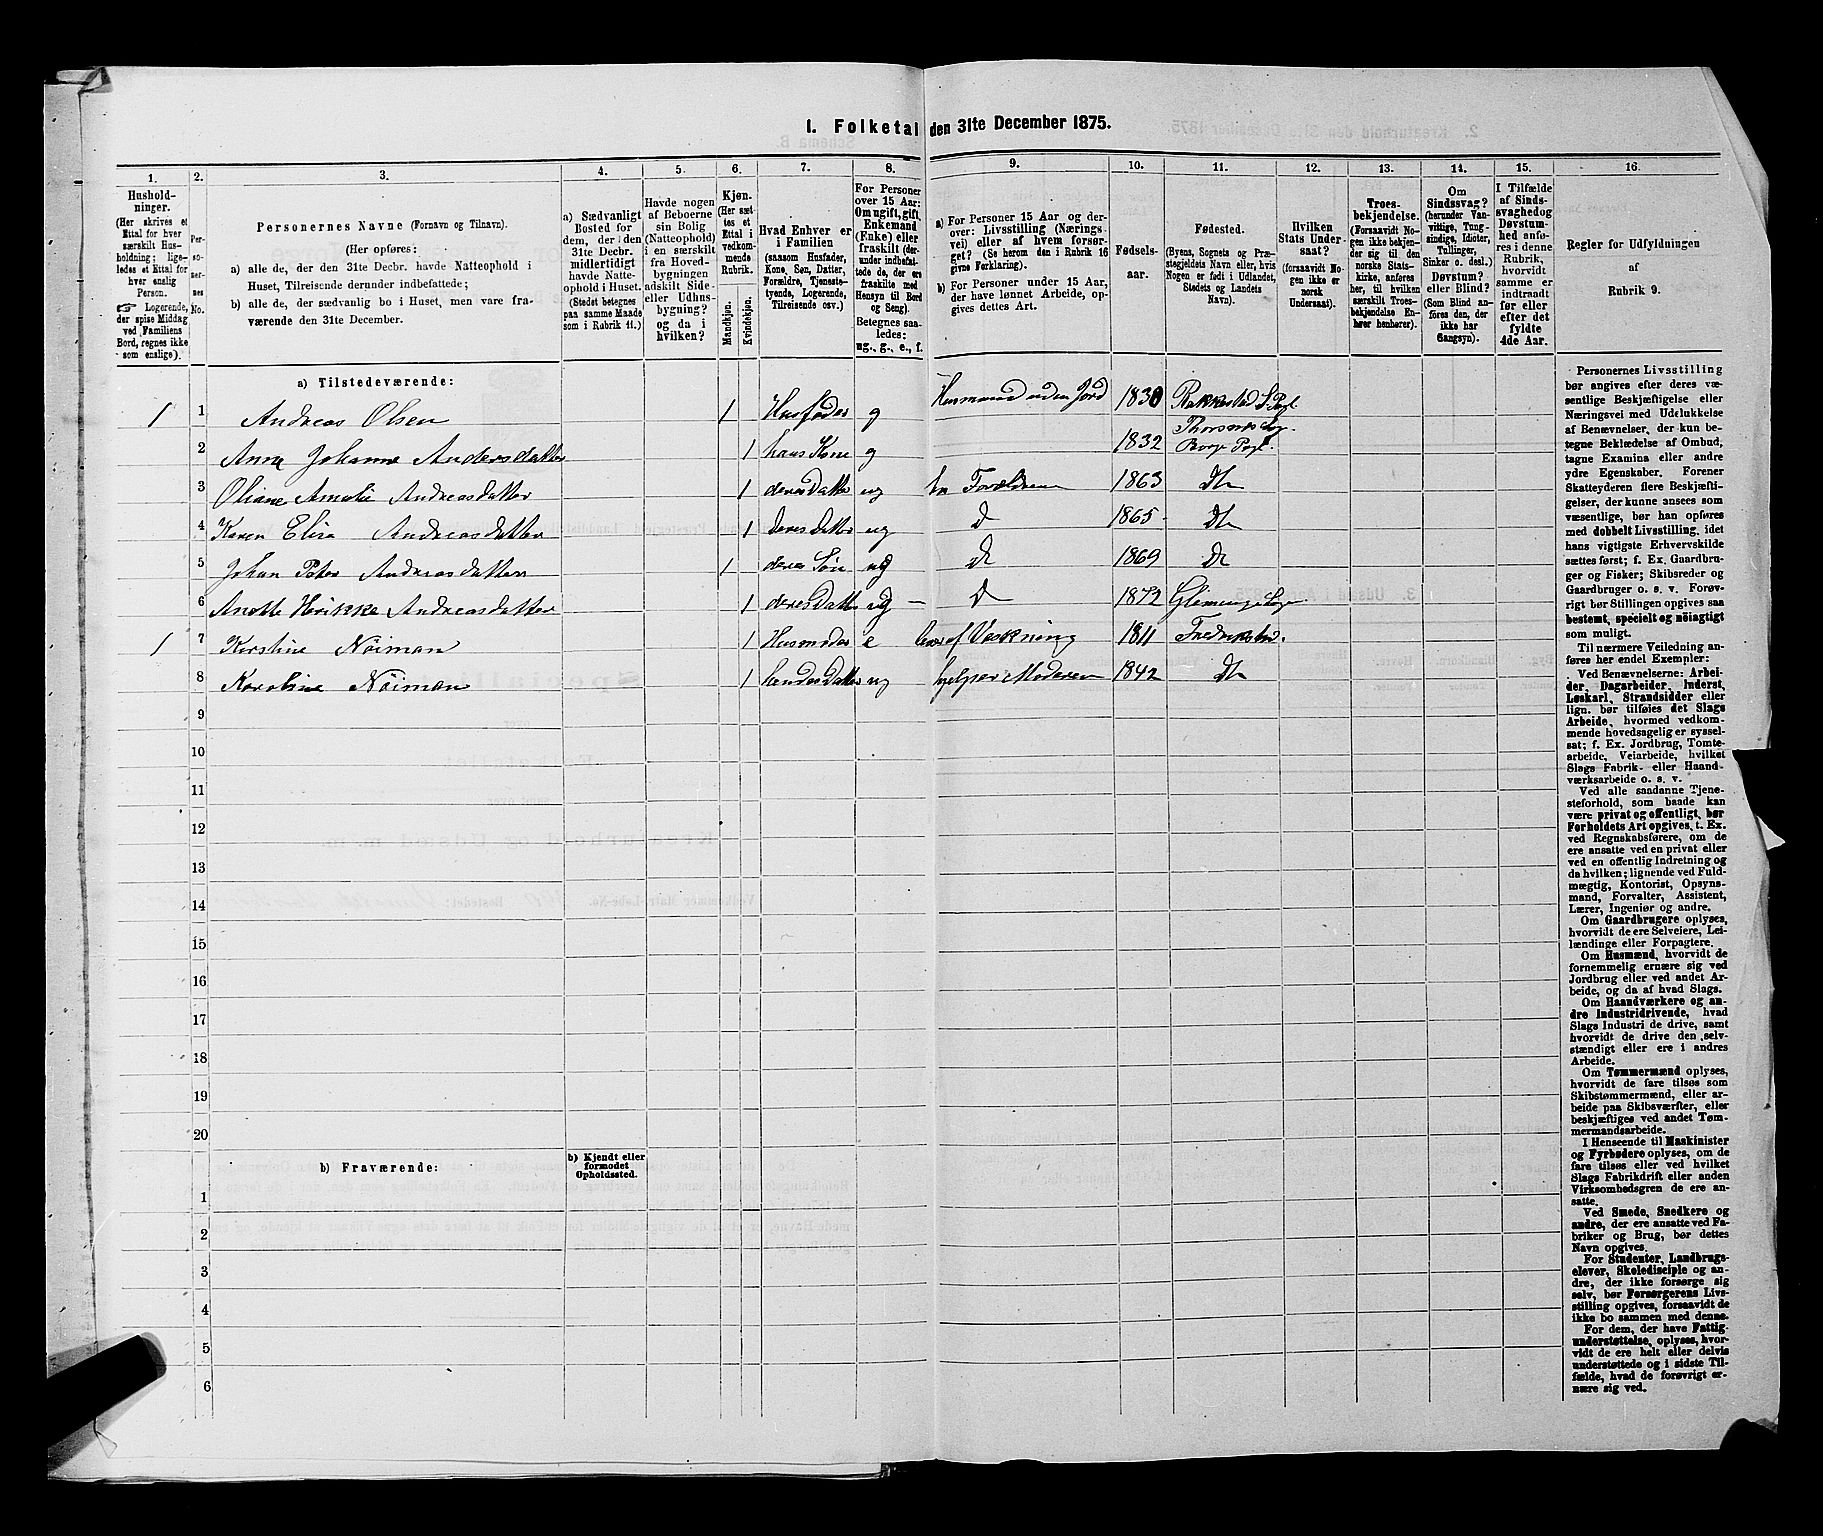 I. Folketal den 31te December 1875.
1. 2. 3. 4. 5. 6. 7. 8. 9. 10. 11. 12. 13. 14. 15. 16.
Hushold-
ninger.
(Her skrives et
Ettal for hver
særskilt Hus-
holdning; lige-
ledes et Ettal for
hver enslig
Person.
☞ Logerende,
der spise Middag
ved Familiens
Bord, regnes ikke
som enslige).
Per-
so-
ner-
nes
No.
Personernes Navne (Fornavn og Tilnavn).
(Her opføres:
a) alle de, der den 31te Decbr. havde Natteophold i
Huset, Tilreisende derunder indbefattede;
b) alle de, der sædvanlig bo i Huset, men vare fra-
værende den 31te December.
a) Sædvanligt
Bosted for
dem, der den
31te Decbr.
midlertidigt
havde Natte-
ophold i Huset.
(Stedet betegnes
paa samme Maade
som i Rubrik 11.)
Havde nogen
af Beboerne
sin Bolig
(Natteophold)
i en særskilt
fra Hoved-
bygningen
adskilt Side-
eller Udhus-
bygning?
og da i
hvilken?
Kjøn.
(Her sæt-
tes et
Ettal i
vedkom-
mende
Rubrik.
Mandkjøn.
Kvindekjøn.
Hvad Enhver er
i Familien
(saasom Husfader,
Kone, Søn, Datter,
Forældre, Tjeneste-
tyende, Logerende,
Tilreisende osv.)
For Personer
over 15 Aar:
Om ugift, gift,
Enkemand
(Enke) eller
fraskilt (der-
under indbefat-
tede de, der ere
fraskilte med
Hensyn til Bord
og Seng).
Betegnes saa-
ledes:
ug., g., e., f.
a) For Personer 15 Aar og der-
over: Livsstilling (Nærings-
vei) eller af hvem forsør-
get? (Se herom den i Rubrik 16
givne Forklaring).
b) For Personer under 15 Aar,
der have lønnet Arbeide, op-
gives dettes Art.
Fødsels-
aar.
Fødested.
(Byens, Sognets og Præ-
stegjeldets Navn eller, hvis
Nogen er født i Udlandet,
Stedets og Landets
Navn).
Hvilken
Stats Under-
saat?
(forsaavidt No-
gen ikke er
norsk
Undersaat).
Troes-
bekjendelse.
(Forsaavidt No-
gen ikke bekjen-
der sig til den
norske Stats-
kirke, anføres
her, til hvilken
særskilt Troes-
bekjendelse En-
hver henhører).
Om
Sindssvag?
(herunder Van-
vittige, Tung-
sindige, Idioter,
Tullinger,
Sinker o. desl.)
Døvstum?
eller Blind?
(Som Blind an-
føres den, der
ikke har
Gangsyn).
I Tilfælde
af Sinds-
svaghed og
Døvstum-
hed anfø-
res i denne
Rubrik,
hvorvidt
samme er
indtraadt
før eller
efter det
fyldte
4de Aar.
Regler for Udfyldningen
af
Rubrik 9.
a) Tilstedeværende:
1 1 Andreas Olsen 1 Husfader g Husmand uden Jord 1830 Rakkestad S. Pgl.
2 Anna Johanne Andersdatter 1 hans Kone g 1832 Thorsnes Sog. Borge Pgl.
3 Oliane Amalie Andreasdatter 1 deres Datter ug Forældrene 1863 Do
4 Karen Elisa Andreasdatter 1 deres datter ug Do 1865 Do
5 Johan Peter Andreasdatter 1 deres Søn ug Do 1869 Do
6 Anette Herikke Andreasdatter 1 deres Datter ug — Do 1872 Glemminge Sogn
1 7 Kirstine Nöiman 1 Husmoder e lever af Vaskning 1811 Fredrikstad.
8 Karoline Nöiman 1 hendes Datter ug hjelper Moderen 1842 Do
9
10
11
12
13
14
15
16
17
18
19
20
b) Fraværende:
b) Kjendt eller
formodet
Opholdssted.
1
2
3
4
5
6
Personernes Livsstilling
bør angives efter deres væ-
sentlige Beskjæftigelse eller
Næringsvei med Udelukkelse
af Benævnelser, der kun be-
tegne Beklædelse af Ombud,
tagne Examina eller andre
ydre Egenskaber. Forener
Skatteyderen flere Beskjæfti-
gelser, der kunne ansees som
væsentlige, bør han opføres
med dobbelt Livsstilling, idet
hans vigtigste Erhvervskilde
sættes først; f. Ex. Gaardbru-
ger og Fisker; Skibsreder og
Gaardbruger o. s. v. Forøv-
rigt bør Stillingen opgives saa
bestemt, specielt og nøiagtigt
som muligt.
Til nærmere Veiledning an-
føres her endel Exempler:
Ved Benævnelserne: Arbei-
der, Dagarbeider, Inderst,
Løskarl, Strandsidder eller
lign. bør tilføies det Slags
Arbeide, hvormed vedkom-
mende hovedsagelig er syssel-
sat; f. Ex. Jordbrug, Tomte-
arbeide, Veiarbeide, hvilket
Slags Fabrik- eller Haand-
værksarbeide o. s. v.
Ved alle saadanne Tjene-
steforhold, som baade kan
være privat og offentligt, bør
Forholdets Art opgives, t. Ex.
ved Regnskabsførere, om de
ere ansatte ved en privat eller
ved en offentlig Indretning og
da hvilken; lignende ved Fuld-
mægtig, Kontorist, Opsyns-
mand, Forvalter, Assistent,
Lærer, Ingeniør og andre.
Om Gaardbrugere oplyses,
hvorvidt de ere Selveiere, Lei-
lændinge eller Forpagtere.
Om Husmænd, hvorvidt de
fornemmelig ernære sig ved
Jordbrug eller ved andet Ar-
beide, og da af hvad Slags.
Om Haandværkere og an-
dre Industridrivende, hvad
Slags Industri de drive, samt
hvorvidt de drive den selv-
stændigt eller ere i andres
Arbeide.
Om Tømmermænd oplyses,
hvorvidt de fare tilsøs som
Skibstømmermænd, eller ar-
beide paa Skibsværfter, eller
beskjæftiges ved andet Tøm-
mermandsarbeide.
I Henseende til Maskinister
og Fyrbødere oplyses, om de
fare tilsøs eller ved hvilket
Slags Fabrikdrift eller anden
Virksomhedsgren de ere an-
satte.
Ved Smede, Snedkere og
andre, der ere ansatte ved Fa-
briker og Brug, bør dettes
Navn opgives.
For Studenter, Landbrugs-
elever, Skoledisciple og an-
dre, der ikke forsørge sig
selv, bør Forsørgerens Livs-
stilling opgives, forsaavidt de
ikke bo sammen med denne.
For dem, der have Fattig-
understøttelse, oplyses, hvor-
vidt de ere helt eller delvis
understøttede og i sidste Til-
fælde, hvad de forøvrigt er-
nære sig ved.